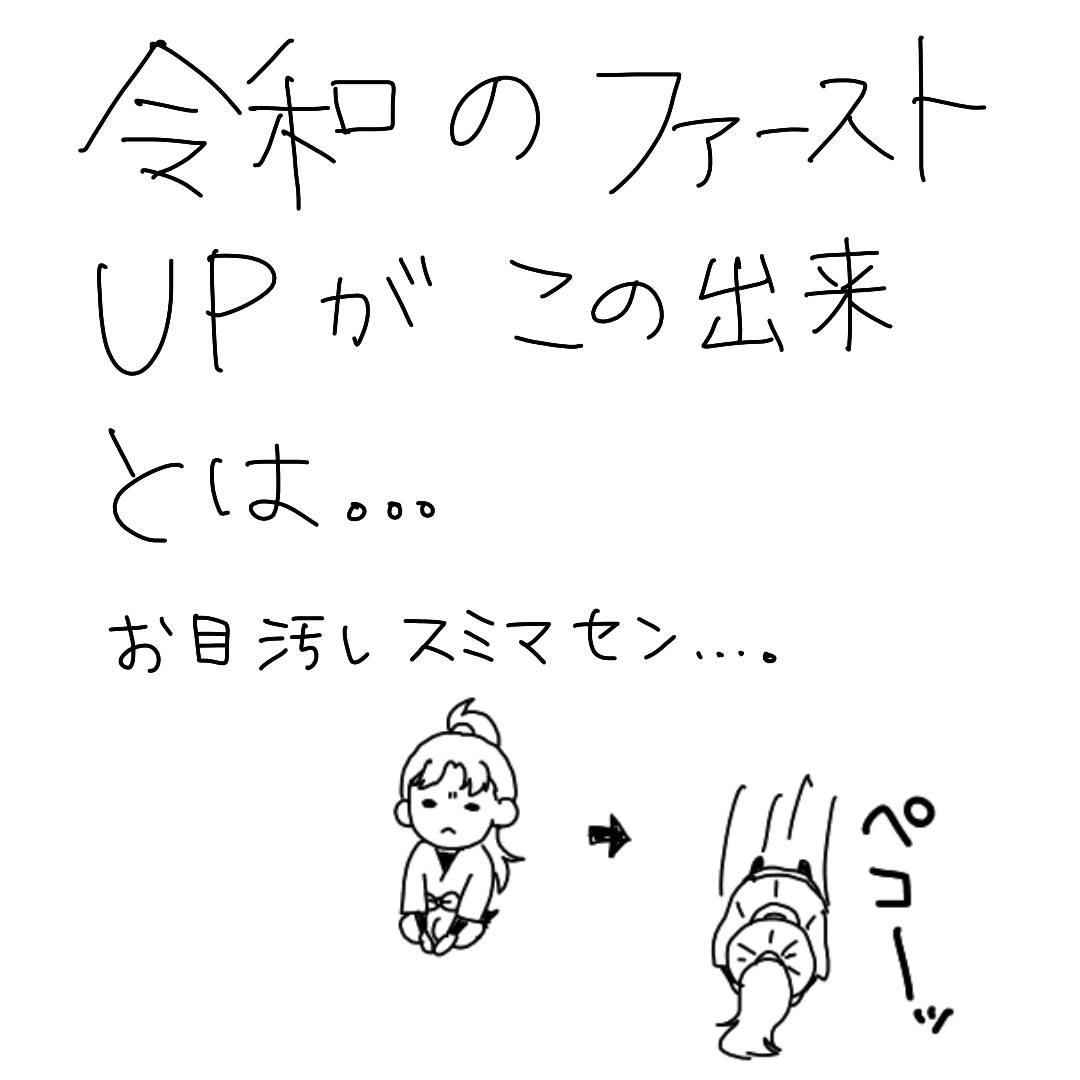 令和のファースト
UPがこの出来
とは。。。
お目汚しスミマセン...。
ペコーッ